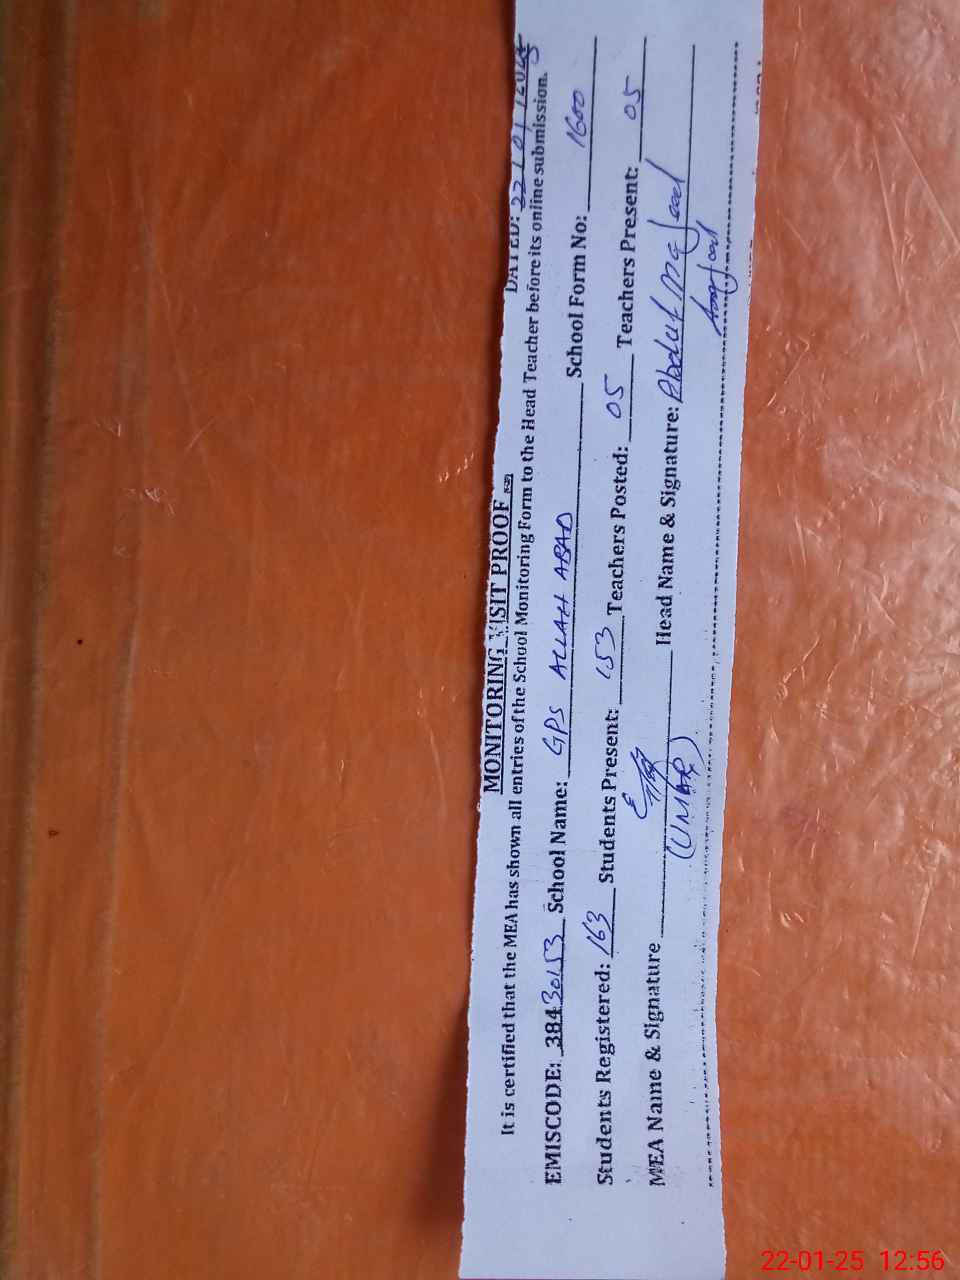 DATED: 22/01/2025
MONITORING VISIT PROOF
It is certified that the MEA has shown all entries of the School Monitoring Form to the Head Teacher before its online submission.
EMISCODE: 38430153 School Name: GPS ALLAH ABAD School Form No: 1600
Students Registered: 163 Students Present: 153 Teachers Posted: 05 Teachers Present: 05
MEA Name & Signature (UMAR) Head Name & Signature: Abdul Majeed
22-01-25 12:56